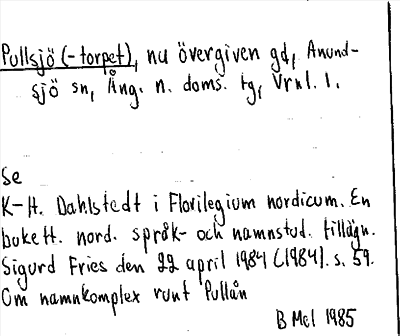 Pullsjö (-torpet), nu övergiven gd, Anund-
sjö sn, Ång. n. doms. tg, Vrnl. 1.
Se
K-H. Dahlstedt i Florilegium nordicum. En
bukett. nord. språk- och namnstud. tillägn.
Sigurd Fries den 22 april 1984 (1984). s. 59.
Om namnkomplex runt Pullån
B Mel 1985